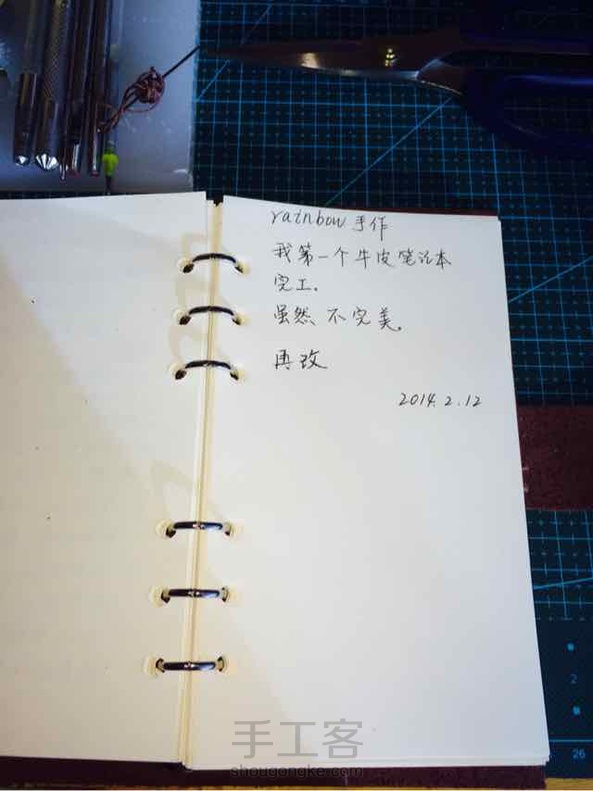 rainbow 手作
我第一个牛皮笔记本
完工.
虽然 不完美.
再改
2014.2.12
2
26
手工客
shougongke.com